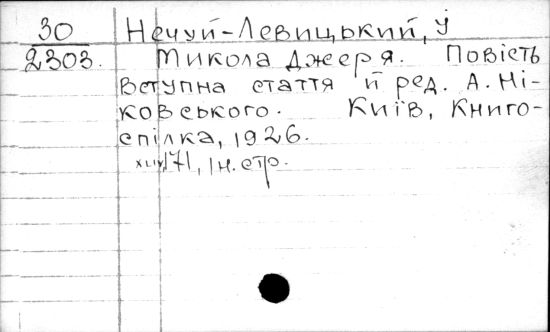 30
2303.
Нечуй-Левицький, У
Микола Джеря. Повість
Вступна стаття й ред. А. Ні-
ковського. Київ, Книго-
спілка, 1926.
171, 1 н. стр.